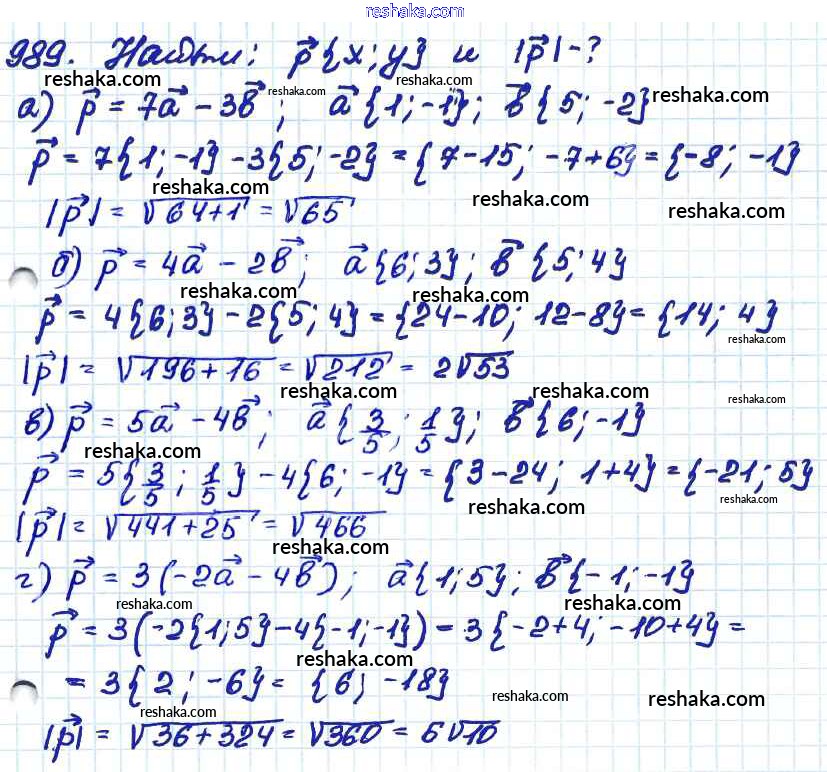 reshaka.com
989. Найти: p⃗ {x; y} и |p⃗| - ?
reshaka.com reshaka.com
а) p⃗ = 7a⃗ - 3b⃗; a⃗ {1; -1}; b⃗ {5; -2}
reshaka.com
p⃗ = 7{1; -1} - 3{5; -2} = {7-15; -7+6} = {-8; -1}
reshaka.com reshaka.com reshaka.com
|p⃗| = √(64+1) = √65
б) p⃗ = 4a⃗ - 2b⃗; a⃗ {6; 3}; b⃗ {5; 4}
reshaka.com reshaka.com
p⃗ = 4{6; 3} - 2{5; 4} = {24-10; 12-8} = {14; 4}
reshaka.com
|p⃗| = √(196+16) = √212 = 2√53
reshaka.com reshaka.com reshaka.com
в) p⃗ = 5a⃗ - 4b⃗; a⃗ {3/5; 1/5}; b⃗ {6; -1}
reshaka.com
p⃗ = 5{3/5; 1/5} - 4{6; -1} = {3-24; 1+4} = {-21; 5}
reshaka.com reshaka.com
|p⃗| = √(441+25) = √466
reshaka.com
г) p⃗ = 3(-2a⃗ - 4b⃗); a⃗ {1; 5}; b⃗ {-1; -1}
reshaka.com reshaka.com
p⃗ = 3(-2{1; 5} - 4{-1; -1}) = 3{-2+4; -10+4} =
reshaka.com
= 3{2; -6} = {6; -18}
reshaka.com reshaka.com reshaka.com
|p⃗| = √(36+324) = √360 = 6√10